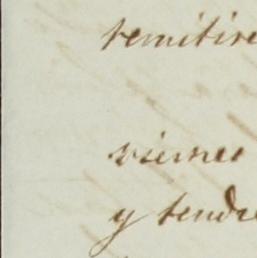 remitire
viernes
y tendre